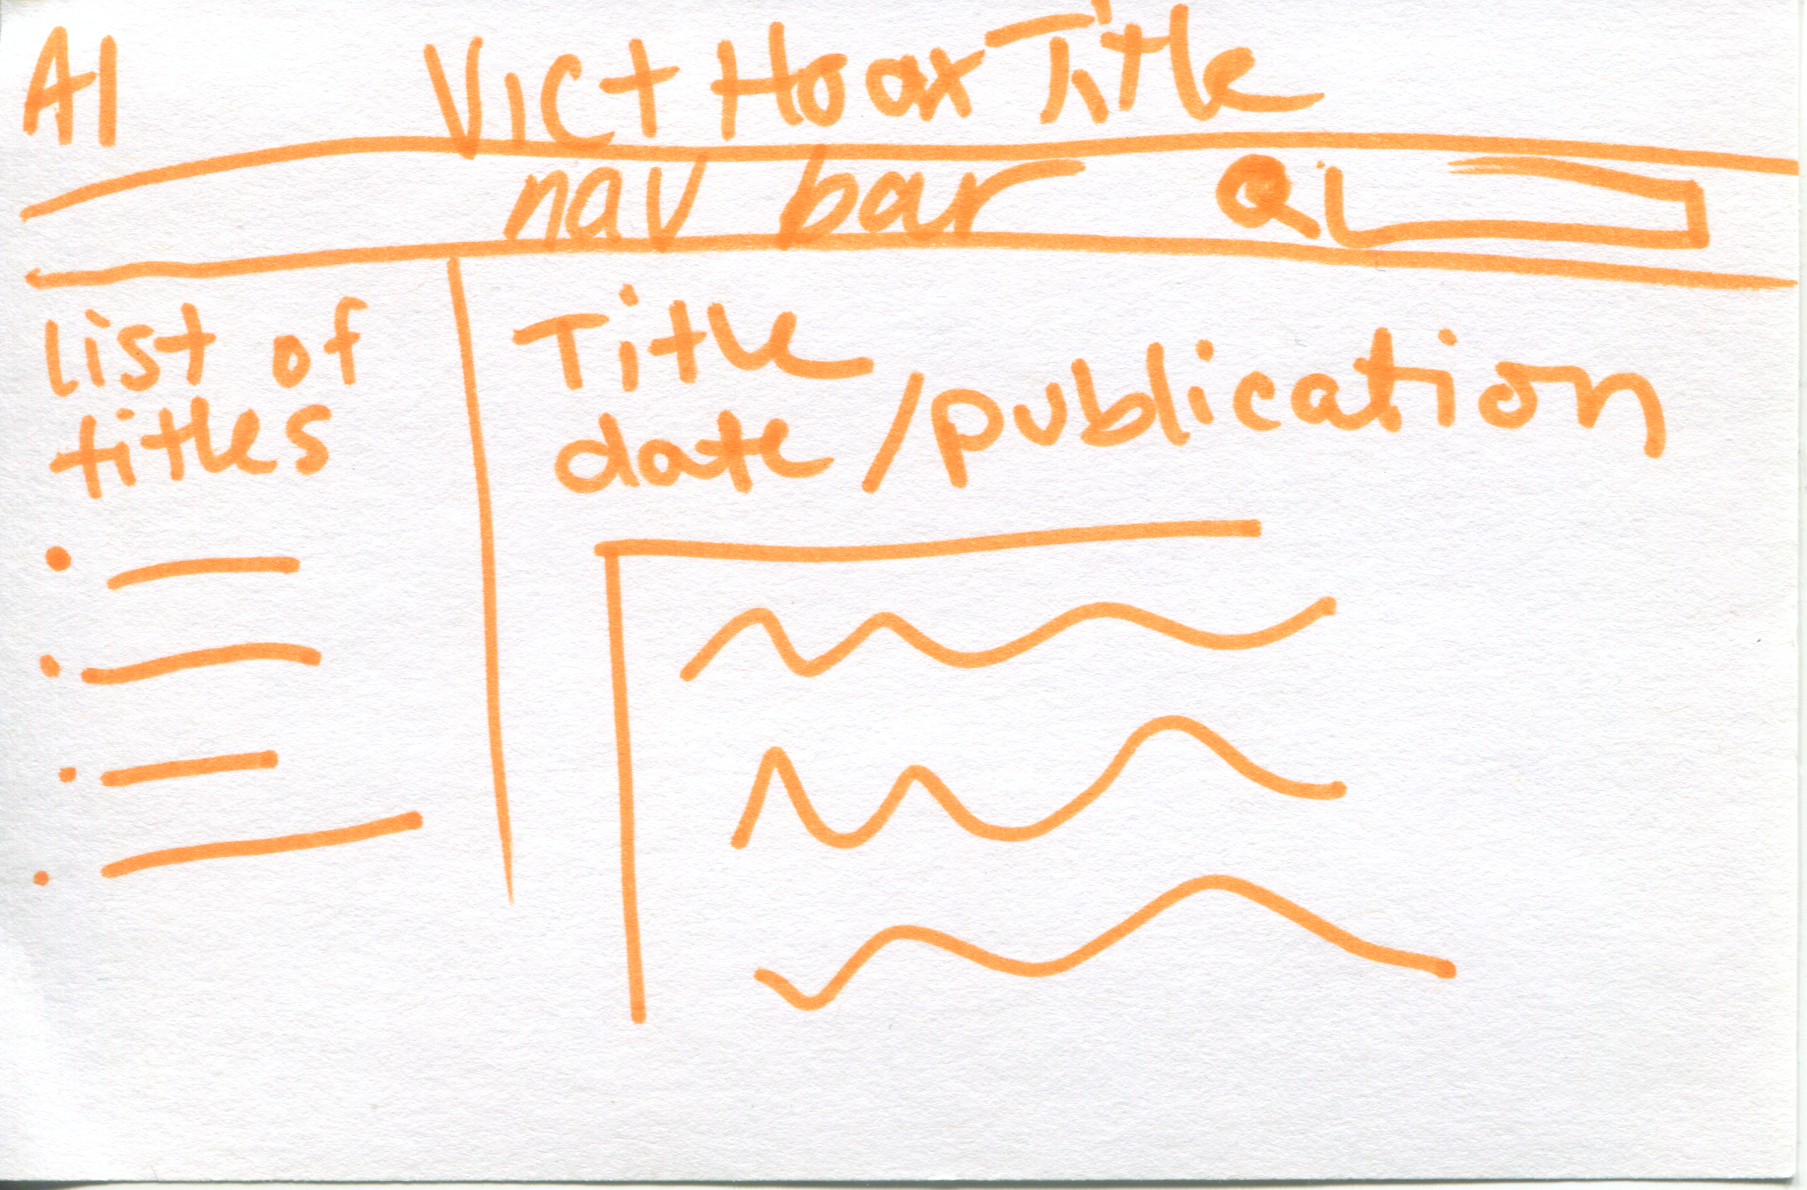 A1
Vict Hoax Title
nav bar
list of
titles
Title
date/publication